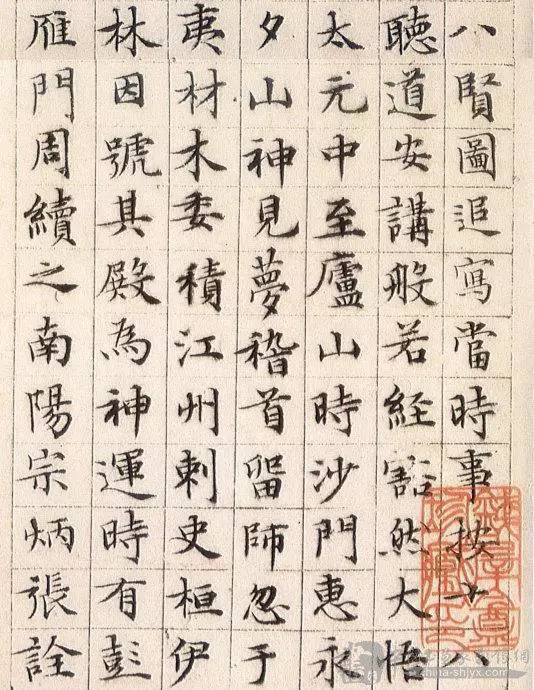 八賢圖追寫當時事按十八
聽道安講般若經豁然大悟
太元中至廬山時沙門惠永
夕山神見夢稽首留師忽于
夷材木委積江州刺史桓伊
林因號其殿為神運時有彭
雁門周續之南陽宗炳張詮
china-shjyx.com